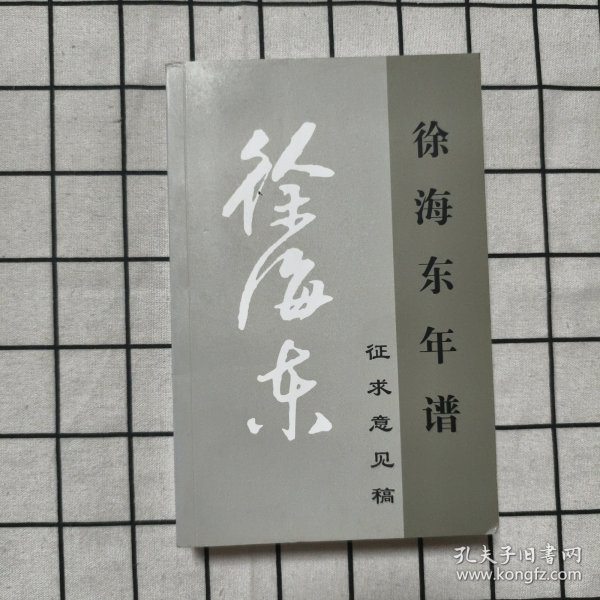 徐海东年谱
徐海东
征求意见稿
孔夫子旧書网
www.kongfz.com